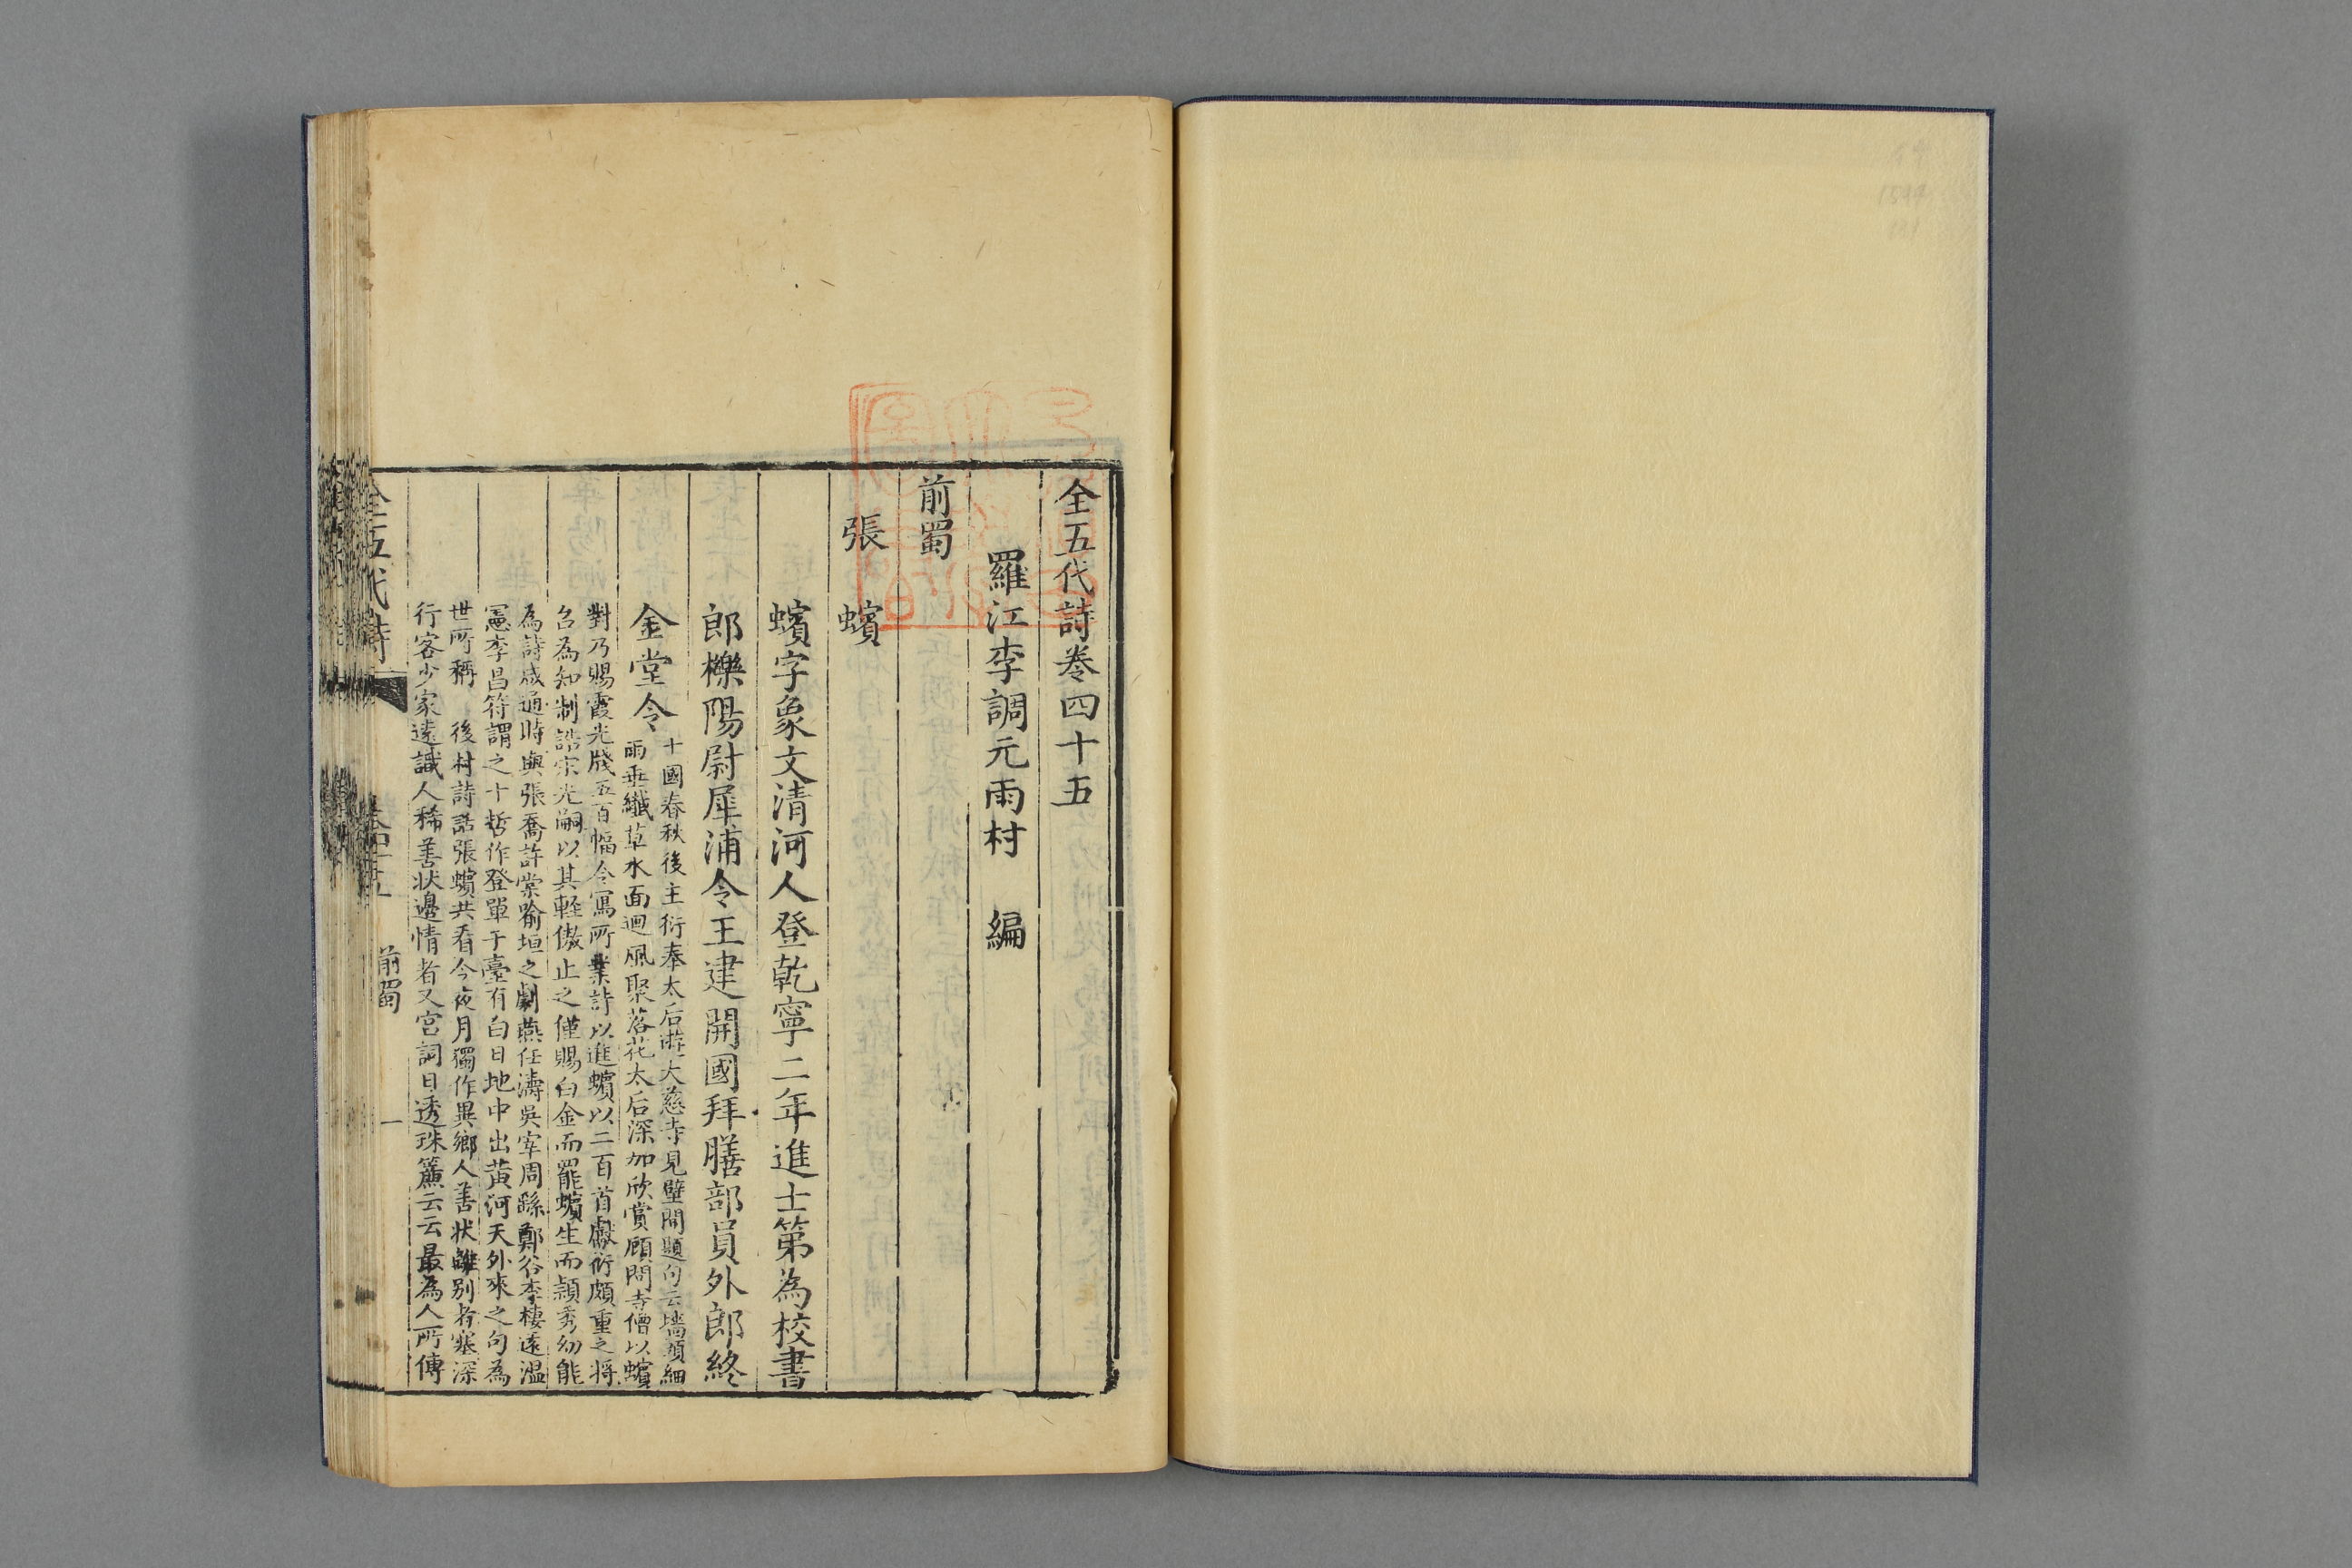 全五代詩卷四十五
羅江李調元雨村 編
前蜀
張 蠙
蠙字象文清河人登乾寧二年進士第為校書
郎櫟陽尉犀浦令王建開國拜膳部員外郎終
金堂令
十國春秋後主衍奉太后遊大慈寺見壁間題句云墻頭細
雨垂纖草水面迴風聚落花太后深加欣賞顧問寺僧以蠙
對乃賜霞光牋五百幅令寫所業詩以進蠙以二百首獻衍頗重之將
召為知制誥宋光嗣以其輕傲止之僅賜白金而罷蠙生而穎秀幼能
為詩咸通時與張喬許棠喻垣之劇燕任濤吳宰周繇鄭谷李棲遠溫
憲李昌符謂之十哲作登單于臺有白日地中出黃河天外來之句為
世所稱 後村詩話張蠙共看今夜月獨作異鄉人善狀離別者塞深
行客少家遠識人稀善狀邊情者又宮詞日透珠簾云云最為人所傳
全五代詩
卷四十五
前蜀
一